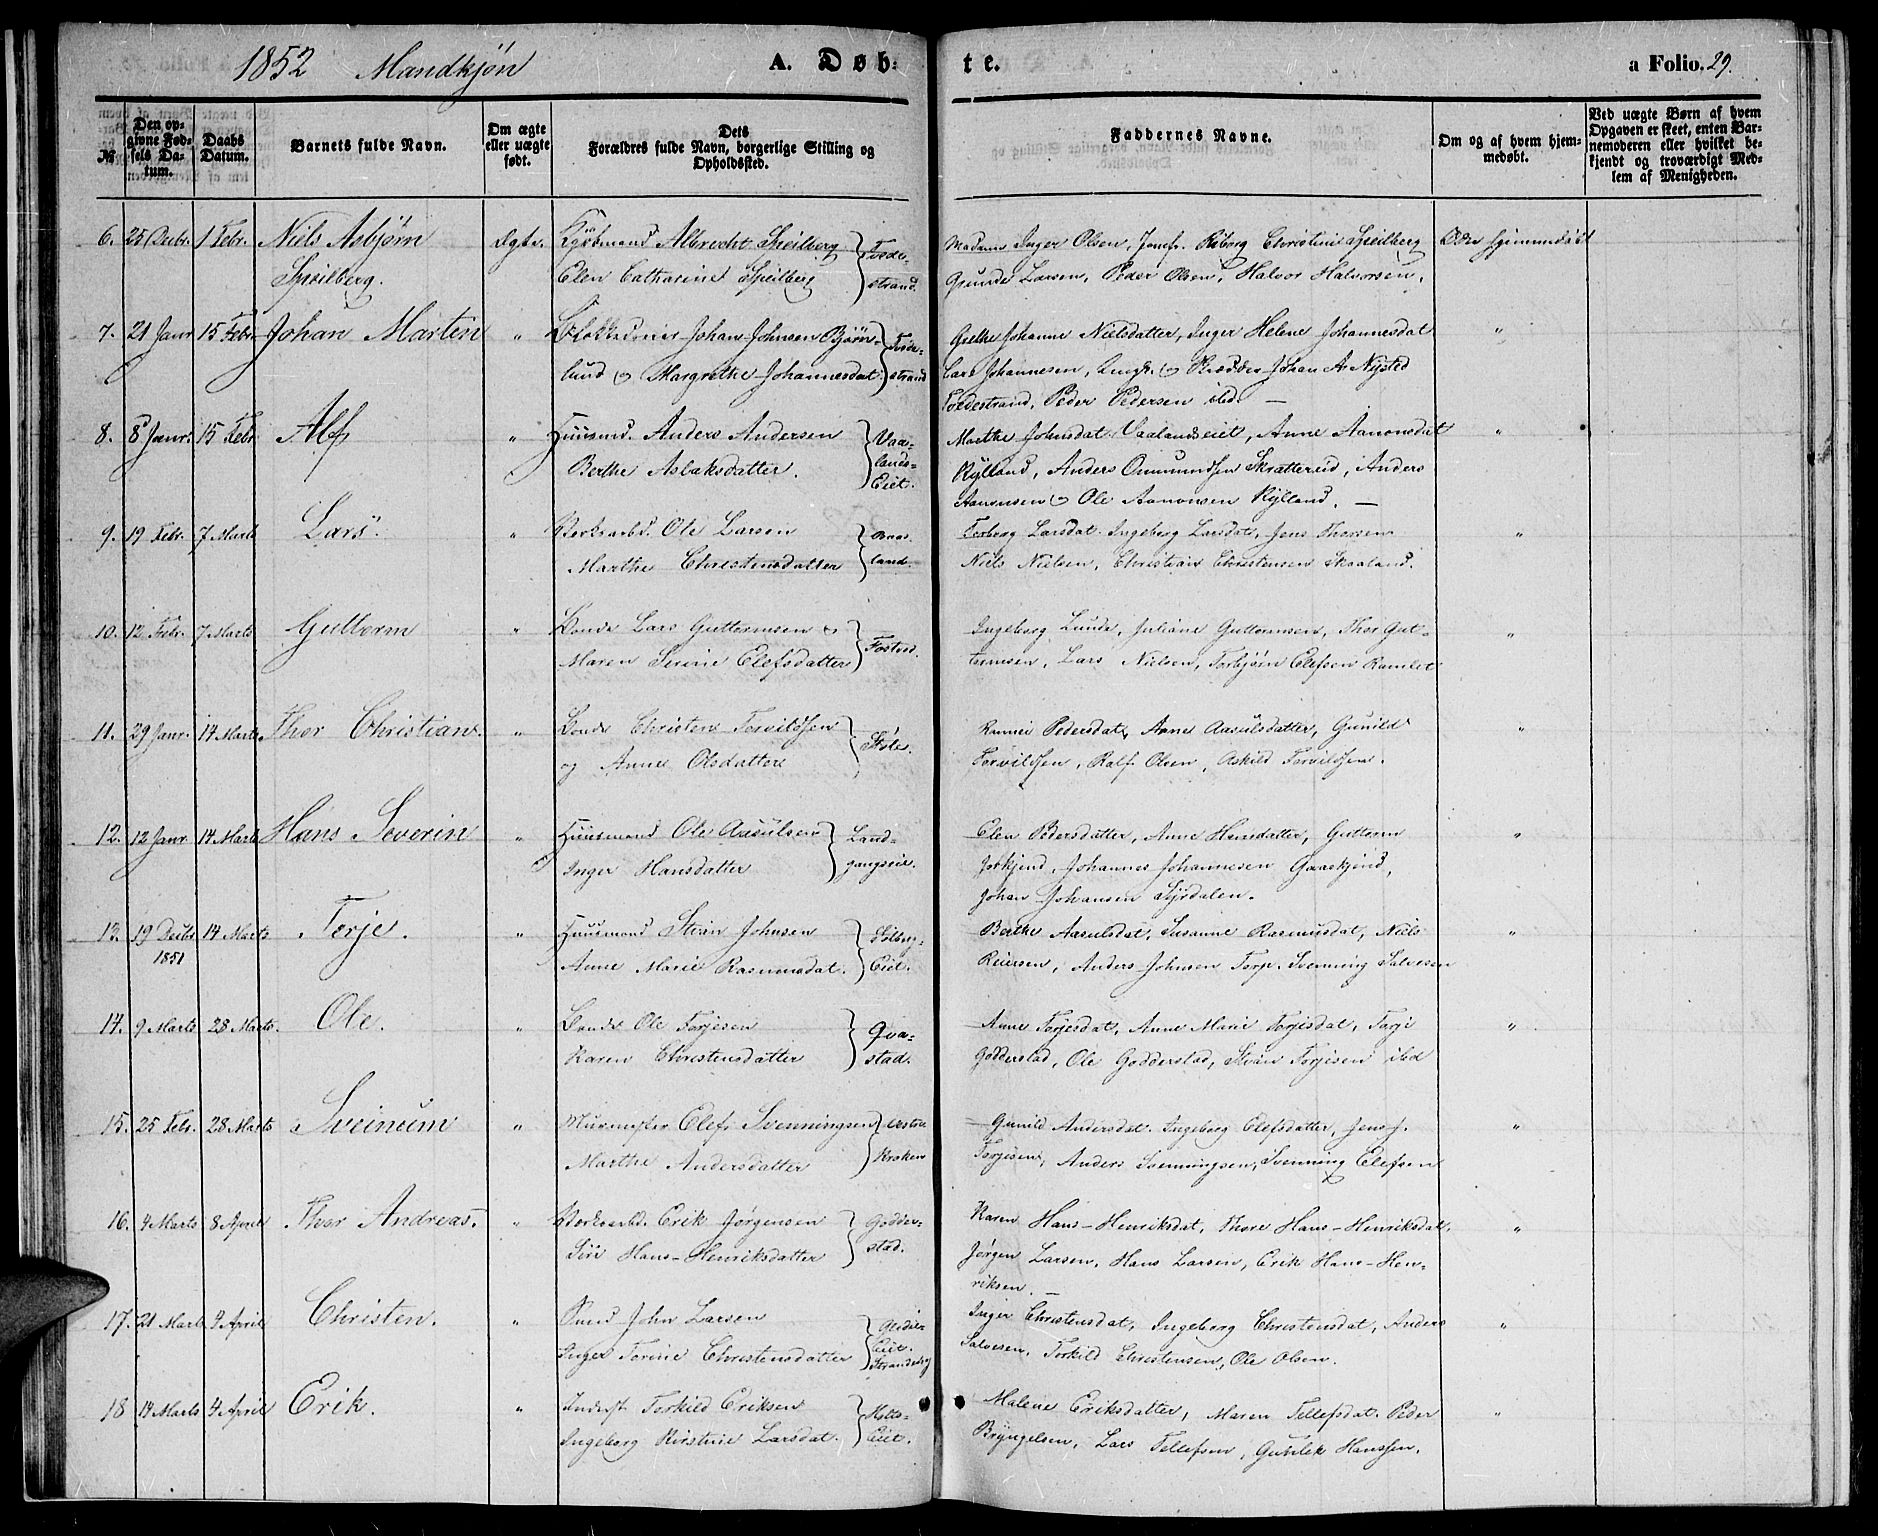 1852 Mandkjøn A. Døbte. a Folio. 29.
№ Den opgivne Fødsels Datum. Daabs Datum. Barnets fulde Navn. Om ægte eller uægte født. Dets Forældres fulde Navn, borgerlige Stilling og Opholdssted. Faddernes Navne. Om og af hvem hjemmedøbt. Ved uægte Børn af hvem Opgaven er skeet, enten Barnemoderen eller hvilket bekjendt og troværdigt Medlem af Menigheden.
6. 25 Decbr. 1 Febr. Niels Asbjørn Ægte. Kjøbmand Albrecht Speilberg Tvede- Madame Inger Olsen, Jomfr. Christine Speilberg Ei hjemmedøbt
Speilberg. Elen Catharine Speilberg strand. Gunde Larsen, Peder Olsen, Halvor Halvorsen.
7. 21 Janr 15 Febr. Johan Martin " Johan Johnsen Bjørn- Tvede- Grethe Johanne Nielsdatter, Inger Helene Johannesdat "
lund & Margrethe Johannesdat. strand Lars Johannesen, Skrædder Johan A. Nysted
Tvedestrand, Peder Pedersen ibid. —
8. 8 Janr. 15 Febr. Alf " Huusmd. Anders Andersen Vaa- Marthe Johnsdat. Vaalandseiet, Anne Aanonsdat "
Berthe Aslaksdatter. lands- Rylland, Anders Ommundsen Skrattereid, Anders
Eiet. Aanonsen & Ole Aanonsen Rylland. —
9. 19 Febr. 7 Marts Lars " Verksarbd. Ole Larsen Torberg Larsdat. Ingeborg Larsdat, Jens Thorsen "
Marthe Christensdatter land Niels Nielsen, Christian Christensen Skaaland.
10. 12 Febr. 7 Marts Guttorm " Bonde Lars Guttormsen & Fostved. Ingeborg Lunde, Juliane Guttormsen, Thor Gut- "
Maren Serine Elefsdatter tormsen, Lars Nielsen, Torbjørn Elefsen Ramlet
11. 29 Janr. 14 Marts Thor Christian. " Bonde Christen Torvildsen Pedersdat, Anne Aasulsdatter, Gunild "
og Anne Olsdatter Torvildsen, Ralf Olsen, Askild Torvildsen.
12. 12 Janr 14 Marts Hans Severin " Huusmand Ole Aasulsen Land- Elen Pedersdatter, Anne Hansdatter, Guttorm "
Inger Hansdatter gangseie. Johannes Johannesen Gaaskjend,
Johan Johansen Lyrdalen.
13. 19 Decbr 14 Marts Terje. " Huusmand Stian Johnsen Solberg- Berthe Aasulsdat, Susanne Rasmusdat, Niels "
1851 Anne Marie Rasmusdat. Eiet. Reiersen, Anders Johnsen Torp. Svenning Salvesen
14. 9 Marts 28 Marts. Ole. " Bonde Ole Torjesen Qva- Anne Torjesdat, Anne Marie Torjesdat, Torje "
Karen Christensdatter stad. Godderstad, Ole Godderstad, Stian Torjesen ibid
15. 25 Febr. 28 Marts Sveinum " Murmester Elef Svenningsen Vestre Gunild Andersdat. Ingeborg Elefsdatter, Jens J. "
Marthe Andersdatter Kroken Torjesen, Anders Svenningsen, Svenning Elefsen
16. 4 Marts 8 April Thor Andreas. " Verksarbd. Erik Jørgensen Godder- Karen Hans-Henriksdat, Thore Hans-Henriksdat. "
Siri Hans-Henriksdatter stad. Jørgen Larsen, Hans Larsen, Erik Hans-Hen-
riksen. —
17. 21 Marts 9 April Christen. " John Larsen Inger Christensdat, Ingeborg Christensdat, Anders "
Inger Torine Christensdatter Eiet. Salvesen, Torkild Christensen, Ole Olsen.
18 14 Marts 4 April Erik. " Inderst Torkild Eriksen Holte- Malene Eriksdatter, Maren Tellefsdat. Peder "
Ingeborg Kirstine Larsdat. Eiet. Bryngelsen, Lars Tellefsen, Gunlek Hanssen.